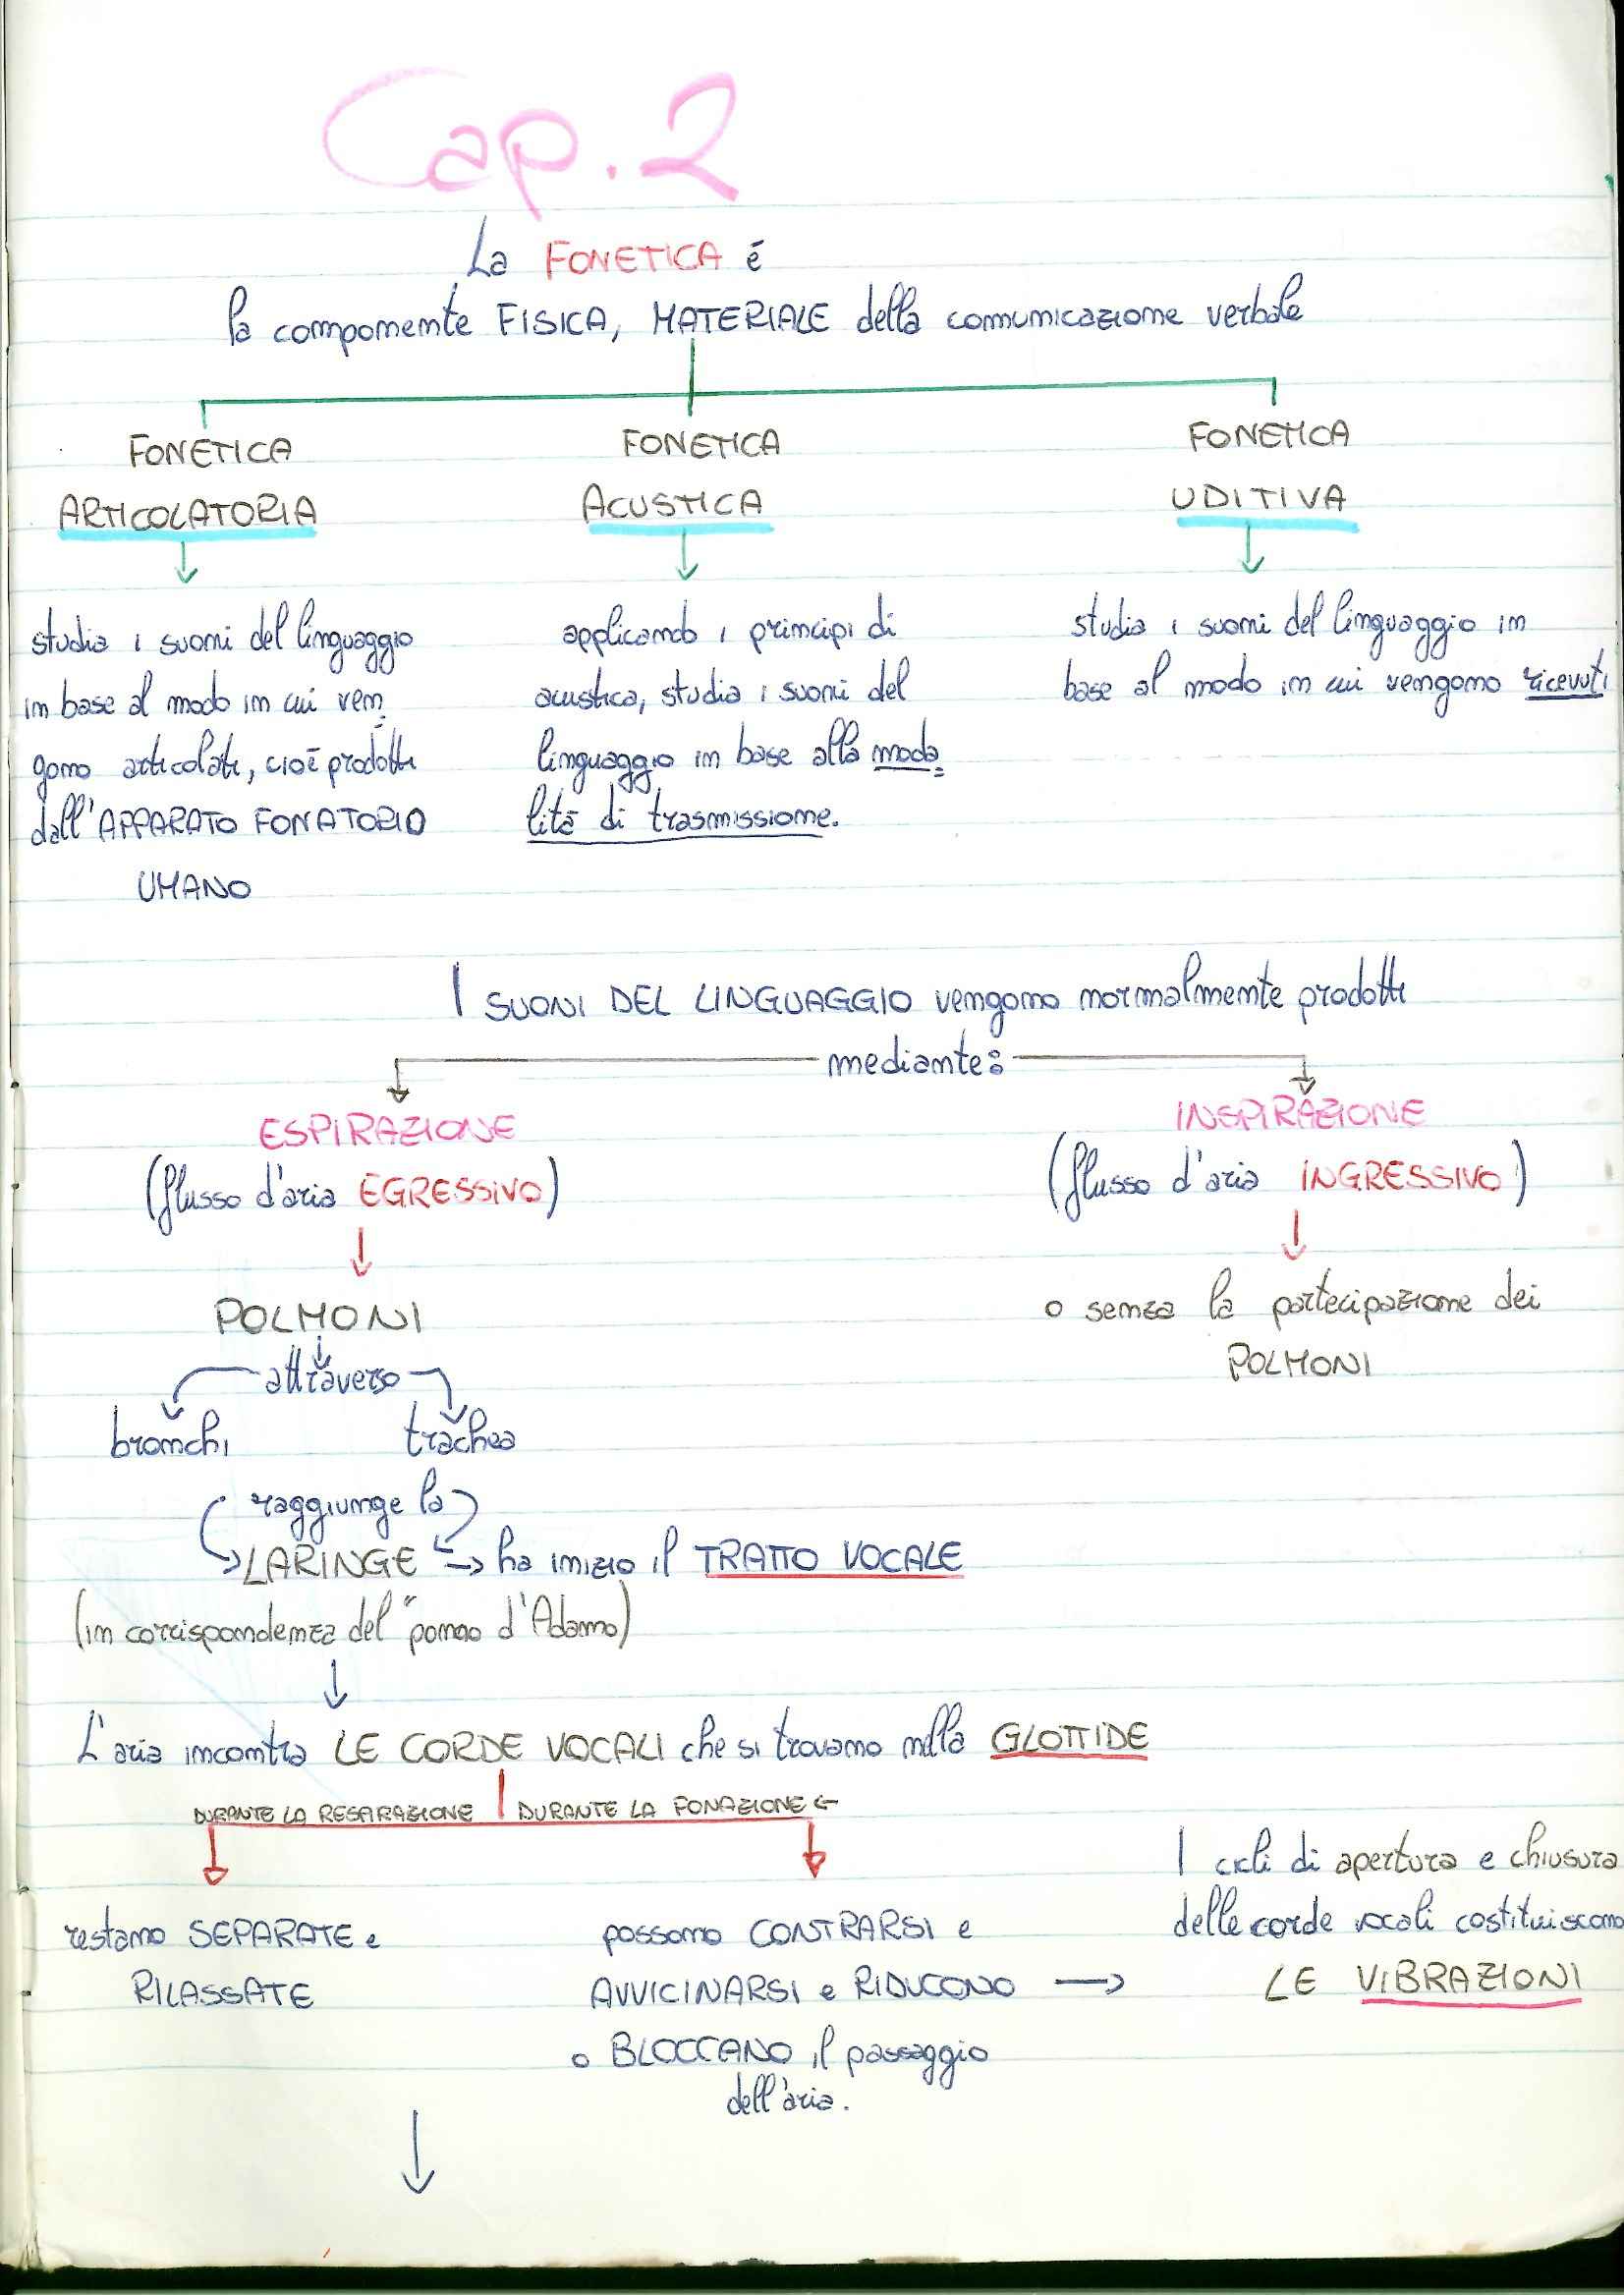 Cap. 2
La FONETICA é
la componente FISICA, MATERIALE della comunicazione verbale
FONETICA
ARTICOLATORIA
studia i suoni del linguaggio
in base al modo in cui ven=
gono articolati, cioè prodotti
dall'APPARATO FONATORIO
UMANO
FONETICA
ACUSTICA
applicando i principi di
acustica, studia i suoni del
linguaggio in base alla moda=
lità di trasmissione.
FONETICA
UDITIVA
studia i suoni del linguaggio in
base al modo in cui vengono ricevuti
I SUONI DEL LINGUAGGIO vengono normalmente prodotti
mediante:
ESPIRAZIONE
(flusso d'aria EGRESSIVO)
POLMONI
attraverso
bronchi trachea
raggiunge la
LARINGE → ha inizio il TRATTO VOCALE
(in corrispondenza del "pomo d'Adamo)
INSPIRAZIONE
(flusso d'aria INGRESSIVO)
o senza la partecipazione dei
POLMONI
L'aria incontra LE CORDE VOCALI che si trovano nella GLOTTIDE
DURANTE LA RESPIRAZIONE DURANTE LA FONAZIONE ←
restano SEPARATE e
RILASSATE
possono CONTRARSI e
AVVICINARSI e RIDUCONO →
o BLOCCANO il passaggio
dell'aria.
I cicli di apertura e chiusura
delle corde vocali costituiscono
LE VIBRAZIONI